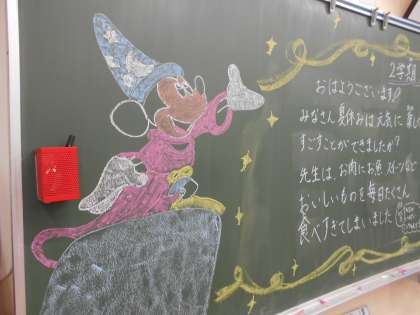 2学期
おはようございます!
みなさん 夏休みは元気に 楽し
すごすことができましたか?
先生は、お肉にお魚 スイーツなど
おいしいものを毎日たくさん
食べすぎてしまいました